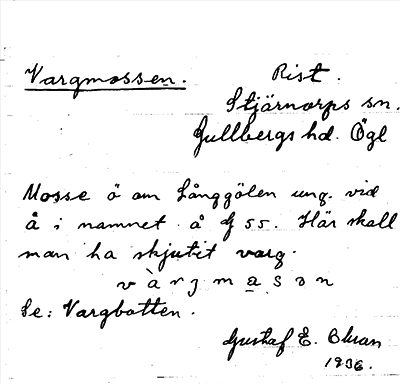 Vargmossen. Rist.
Stjärnorps sn.
Gullbergs hd. Ögl
Mosse ö om Långgölen ung. vid
å i namnet å df 55. Här skall
man ha skjutit varg.
v à r g m a s o n
Se: Vargbotten.
Gustaf E. Ohran
1936.